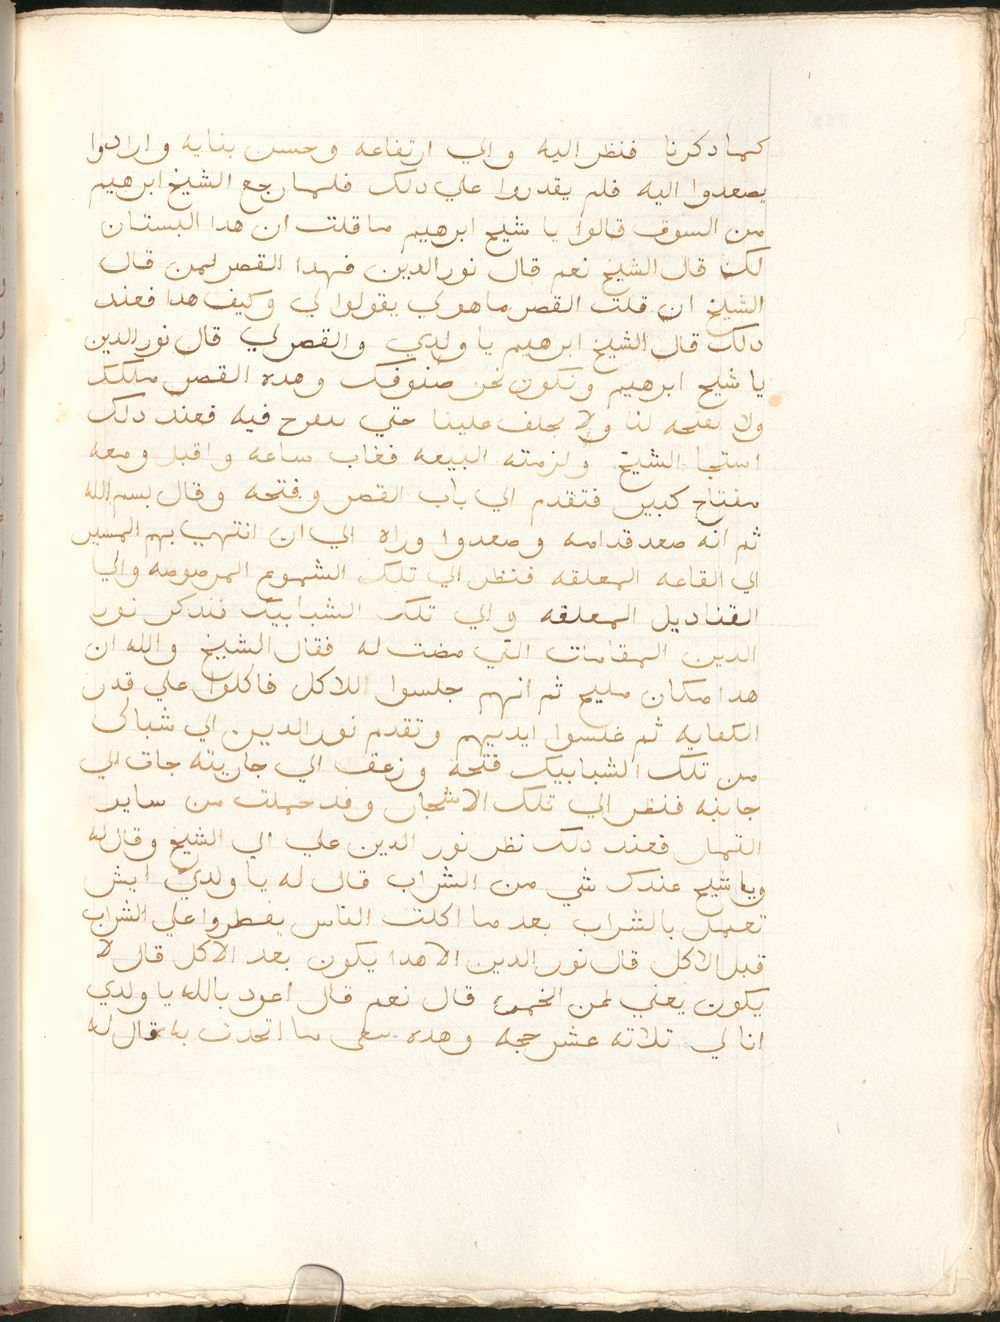 كما دكرنا فنظر اليه والي ارتفاعه وحسن بنايه وارادوا
يصعدوا اليه فلم يقدروا علي دلك فلما رجع الشيخ ابرهيم
من السوق قالوا يا شيخ ابرهيم ما قلت ان هدا البستان
لك قال الشيخ نعم قال نور الدين فهدا القصر لمن قال
الشيخ ان قلت القصر ما هو لي يقولوا لي وكيف هدا فعند
دلك قال الشيخ ابرهيم يا ولدي والقصر لي قال نور الدين
يا شيخ ابرهيم ونكون نحن ضيوفك وهده القصر ملكك
ولا تفتحه لنا ولا تحلف علينا حتي نتفرج فيه فعند دلك
استحا الشيخ ولزمته البيعه فغاب ساعه واقبل ومعه
مفتاح كبير فتقدم الي باب القصر وفتحه وقال بسم الله
ثم انه صعد قدامه وصعدوا وراه الي ان انتهي بهم المسير
الي القاعه المعلقه فنظر الي تلك الشموع المرصوصه والي
القناديل المعلقه والي تلك الشبابيك فتدكر نور
الدين المقامات التي مضت له فقال الشيخ والله ان
هدا مكان مليح ثم انهم جلسوا اللاكل فاكلوا علي قدر
الكفايه ثم غلسوا ايديهم وتقدم نور الدين الي شباك
من تلك الشبابيك فتحه وزعق الي جاريته جات الي
جانبه فنظر الي تلك الاشجار وقد حملت من ساير
التمار فعند دلك نظر نور الدين علي الي الشيخ وقال له
ويا شيخ عندك شي من الشراب قال له يا ولدي ايش
تعمل بالشراب بعد ما اكلت الناس يفطروا علي الشراب
قبل الاكل قال نور الدين الا هدا يكون بعد الاكل قال لا
يكون يعني لمن الخمره قال نعم قال اعود بالله يا ولدي
انا لي تلاته عشر حجه وهده ما اتحدت به قال له